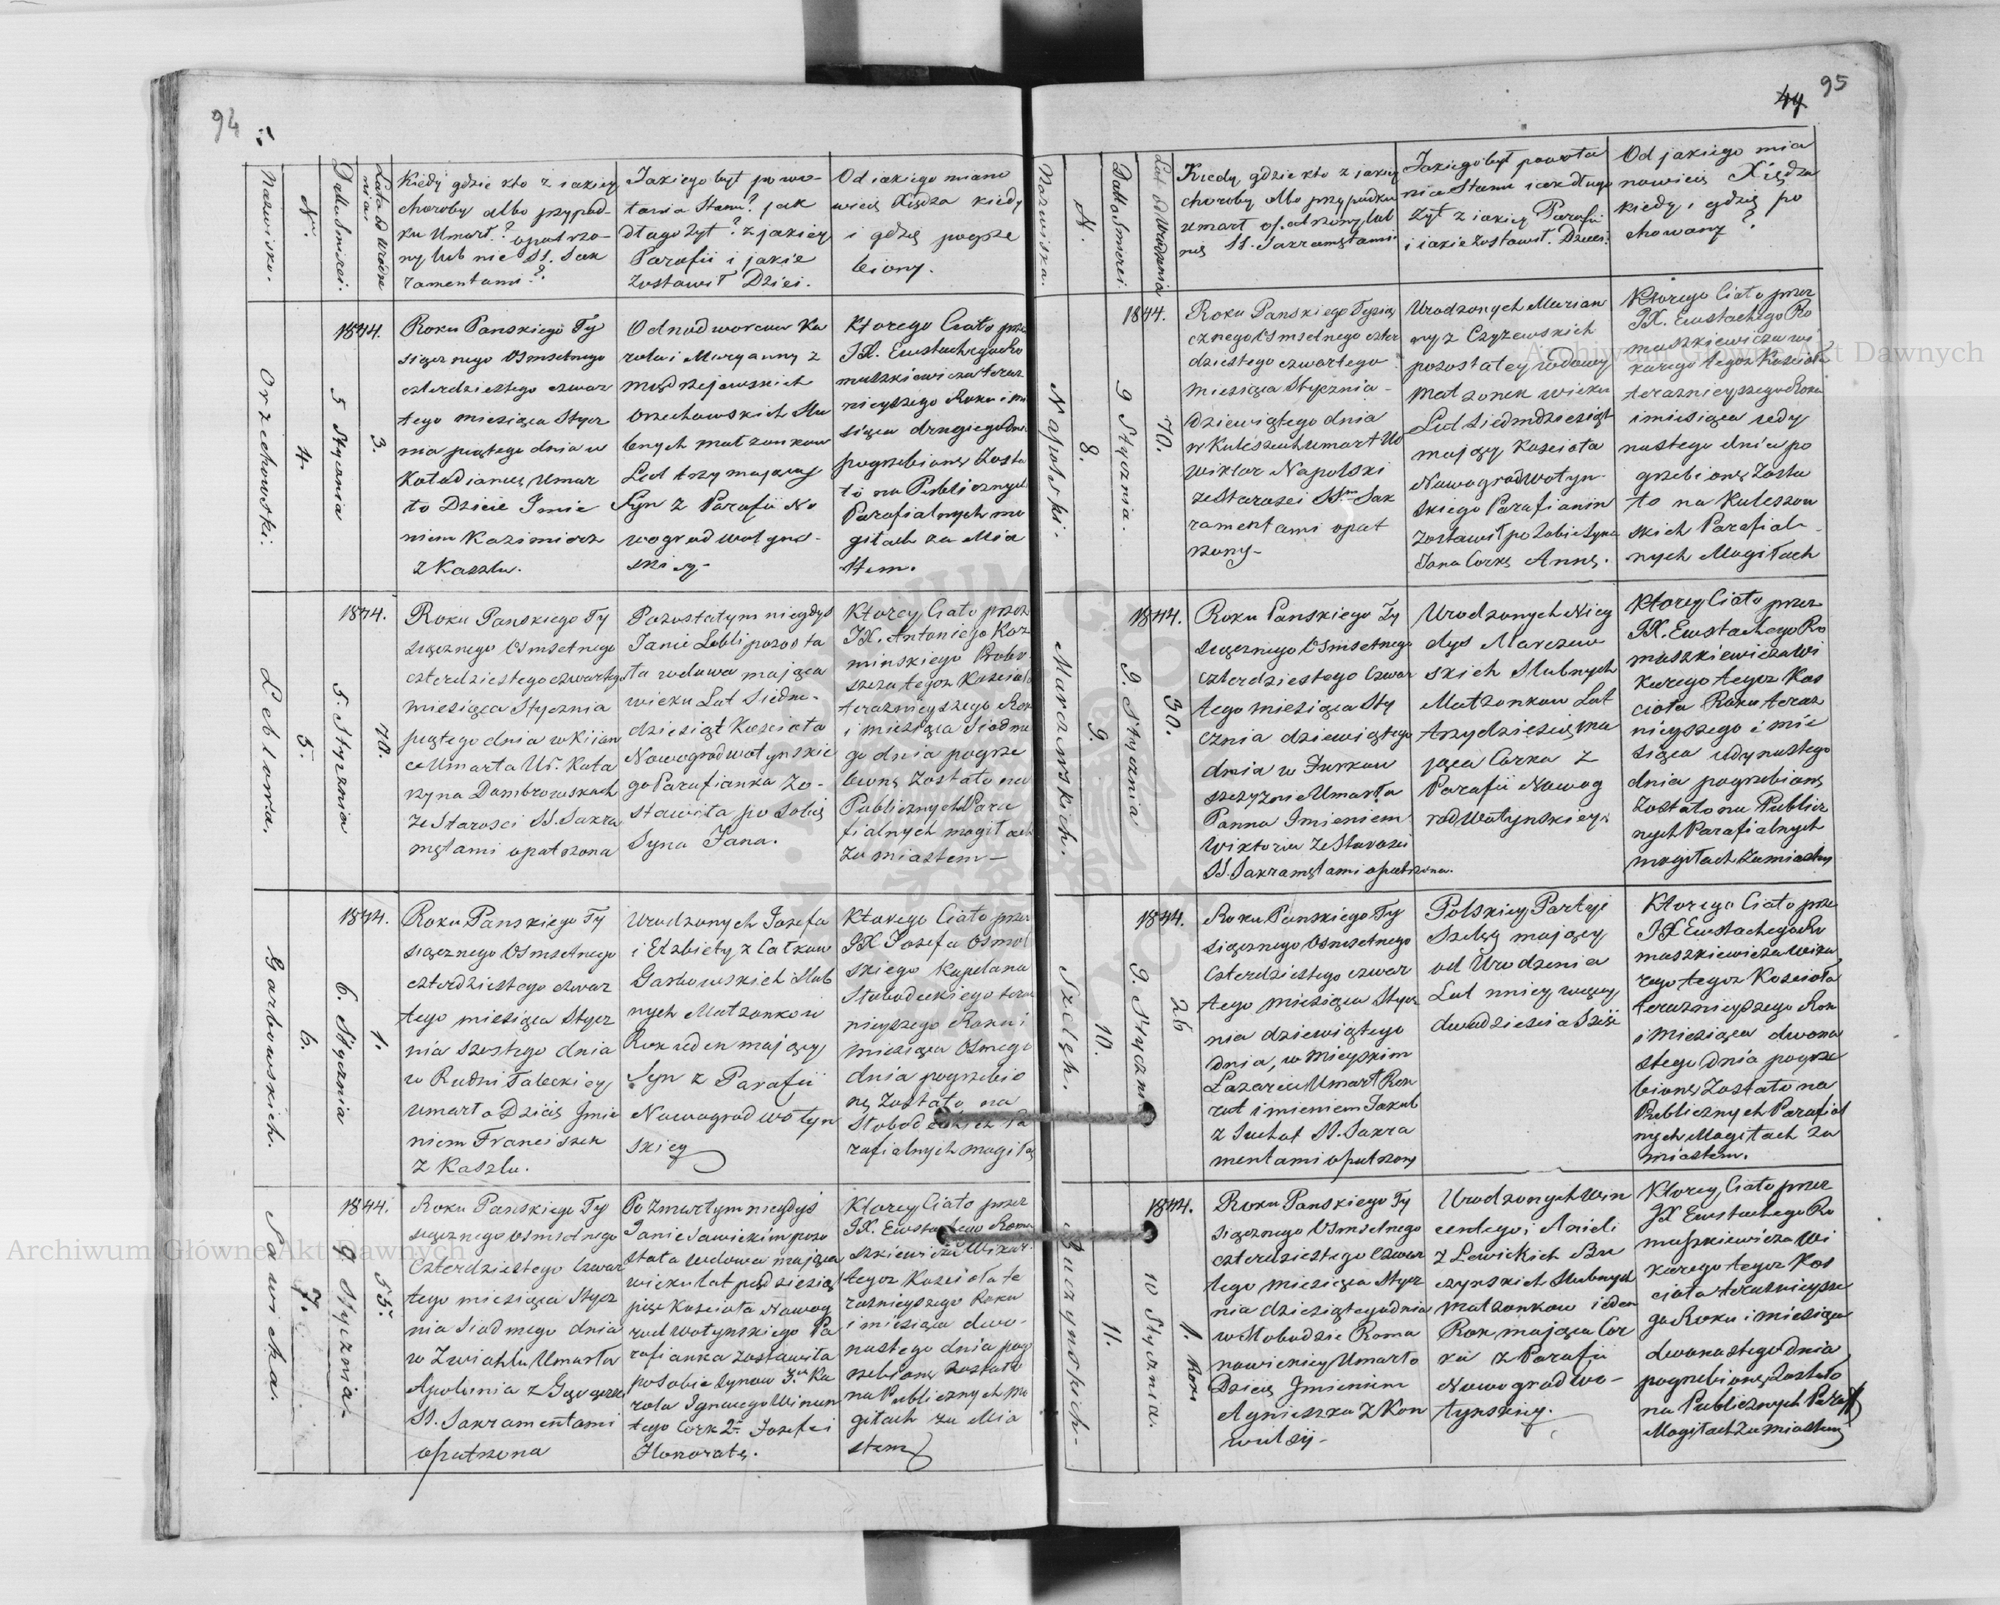 94
Nazwisko.
Nr.
Datta Smierci.
Lata od Urodze
nia
Kiedy gdzie kto z iakiey
choroby albo przypad-
ku Umarł? opatrzo-
ny lub nie SS. Sak
ramentami?
Jakiego był powo-
łania Stanu? jak
długo żył? z jakiey
Parafii i jakie
zostawił Dzieci.
Od iakiego miano
wicie Xiędza kiedy
i gdzie pogrze
biony.
Orzechowski.
4.
1844.
5 Stycznia
3.
Roku Panskiego Ty
siącznego Osmsetnego
czterdziestego czwar
tego miesiąca Stycz
nia piątego dnia w
umar
ło Dziecie Imie
niem Kazimierz
z Kaszlu.
Odnodworcow Ka
rola i Maryanny z
Orzechowskich Slu
bnych małzonkow
Lat trzy mający
Syn z Parafii No
wogrodwołyn-
skiey
Ktorego Ciało prze
JX. Eustachego Ro
muszkiewicza teraz
nieyszego Roku i mi
siąca drugiego dnia
pogrzebione zosta
ło na Publicznych
Parafialnych mo
giłach za Mia
stem.
Leblowa.
5.
1844.
5. Stycznia
70.
Roku Panskiego Ty
siącznego Osmsetnego
czterdziestego czwartego
miesiąca Stycznia
piątego dnia w Kiian
ce Umarła Ur. Kata
rzyna Dombrowskach
ze Starosci SS. Sakra
mętami opatrzona
Pozostałym niegdys
Janie Lebli pozosta
ła wdowa mająca
wieku Lat Siedm-
dziesiąt Kosciola
Nowogrodwołynskie
go Parafianka Zo-
stawiła po Sobie
Syna Jana.
Ktorey Ciało przez
JX. Antoniego Koz
minskiego Probo
szcza tegoz Kosciola
teraznieyszego Roku
i miesiąca Siodme
go dnia pogrze
bione zostało na
Publicznych Para
fialnych mogiłach
za miastem-
Garbowskich.
6.
1844.
6. Stycznia
1.
Roku Panskiego Ty
siącznego Osmsetnego
czterdziestego czwar
tego miesiąca Stycz
nia szostego dnia
w Rudni Taleckiey
umarło Dziecie Imie
niem Franciszek
z Kaszlu.
Urodzonych Jozefa
i Elzbiety z Całkow
Garbowskich Slub
nych Małzonkow
Rok ieden mający
Syn z Parafii
Nowogrod wołyn
skiey
Ktorego Ciało przez
JX Jozefa Osmol
skiego Kapelana
Słobodeckiego teraz
nieyszego Roku i
miesiąca Osmego
dnia pogrzebio
ne zostało na
Słobodeckich Pa
rafialnych mogiłach
Sawicka.
7.
1844.
9. Stycznia.
55.
Roku Panskiego Ty
siącznego osmsetnego
czterdziestego czwar
tego miesiąca Stycz
nia Siodmego dnia
w Zwiahlu Umarła
Apolonia z
SS. Sakramentami
opatrzona
Po zmarłym niegdyś
Janie Sawickim pozo
stała wdowa mająca
wieku lat pięcdziesiąt
pięc Kosciola Nowog
rod Wołynskiego Pa
rafianka zostawiła
po sobie synow 3ch Ka
rola Ignacego Wincen
tego Cork 2. Jozefe i
Honoratę.
Ktorey Ciało przez
JX. Eustachego Romu
szkiewicza Wikar
tegoz Kosciola te
raznieyszego Roku
i miesiąca dwo-
nastego dnia pog
rzebione zostało
na Publicznych mo
giłach za Mia
stem
44
95
Nazwiska.
N.
Datta Smierci.
Lat od Urodzenia
Kiedy, gdzie kto z jakiey
choroby albo przypadku
umarł opatrzony lub
nie SS. Sakramętami
Jakiego był powoła
nia Stanu i iak długo
żył z iakiey Parafii
i iakie zostawił. Dzieci.
Od jakiego mia
nowicie Xiędza
kiedy i gdzie po
chowany?
Napolski.
8.
1844.
9 Stycznia.
70.
Roku Panskiego Tysią
cznego Osmsetnego czter
dziestego czwartego
miesiąca Stycznia-
dziewiątego dnia
w Kuleszach umarł Ur
Wiktor Napolski
ze Starosci SS. Sak
ramentami opat
rzony-
Urodzonych Marian
ny z Czyzewskich
pozostałey wdowy
małzonek wieku
Lat Siedmdziesiąt
mający Kosciola
Nowogrodwołyn
skiego Parafianin
zostawił po sobie Syna
Jana Corke Annę.
Ktorego Ciało przez
JX. Eustachego Ro
muszkiewicza wi
karego tegoz Kosciola
teraznieyszego Roku
i miesiąca iedy
nastego dnia po
grzebione zosta
ło na Kuleszow
skich Parafial-
nych Mogiłach
Marczewskich.
9.
1844.
9. Stycznia
30.
Roku Panskiego Ty
siącznego Osmsetnego
czterdziestego czwar
tego miesiąca Sty
cznia dziewiątego
dnia w Zwkow
szczyznie Umarła
Panna Imieniem
Wiktoria ze Starosci
SS. Sakramętami opatrzona.
Urodzonych Nieg
dys Marczew
skich Slubnych
Małzonkow Lat
trzydziescie ma
jąca Corka z
Parafii Nowog
rodWołynskiey.
Ktorey Ciało przez
JX. Eustachego Ro
muszkiewicza Wi
karego tegoz Kos
ciola Roku teraz
nieyszego i mie
siąca iedynastego
dnia pogrzebione
zostało na Publicz
nych Parafialnych
mogiłach za miastem
Szeląk.
10.
1844.
9. Stycznia
26
Roku Panskiego Ty
siącznego Osmsetnego
czterdziestego czwar
tego miesiąca Stycz
nia dziewiątego
dnia, w Mieyskim
Lazarecie Umarł Kon
rat imieniem Jakub
z Suchot SS. Sakra
mentami opatrzony
Polskiey Partyi
Szeląg mający
od Urodzenia
Lat mniey więcey
dwadziescia szesc
Ktorego Ciało prze
JX Eustachego Ro
muszkiewicza Wika
rego tegoz Kosciola
teraznieyszego Roku
i Miesiąca dwona
stego dnia pogrze
bione zostało na
Publicznych Parafial
nych Mogiłach za
miastem.
Buczynskich-
11.
1844.
10 Stycznia.
1. Rok
Roku Panskiego Ty
siącznego Osmsetnego
czterdziestego czwar
tego miesiąca Stycz
nia dziesiątego dnia
w Słobodzie Roma
nowieckiey Umarło
Dziecie Imieniem
Agnieszka z Kon
wulsij-
Urodzonych Win
centego i Anieli
z Lewickich Bu
czynskich Slubnych
małzonkow ieden
Rok mająca Cor
ka z Parafii
Nowogrodwo-
łynskiey.
Ktorey Ciało przez
JX Eustachego Ro
muszkiewicza Wi
karego tegoz Kos
ciola teraznieysze
go Roku i miesiąca
dwonastego dnia
pogrzebione zostało
na Publicznych Paraf
Mogiłach za miastem
Archiwum Główne Akt Dawnych
Archiwum Główne Akt Dawnych